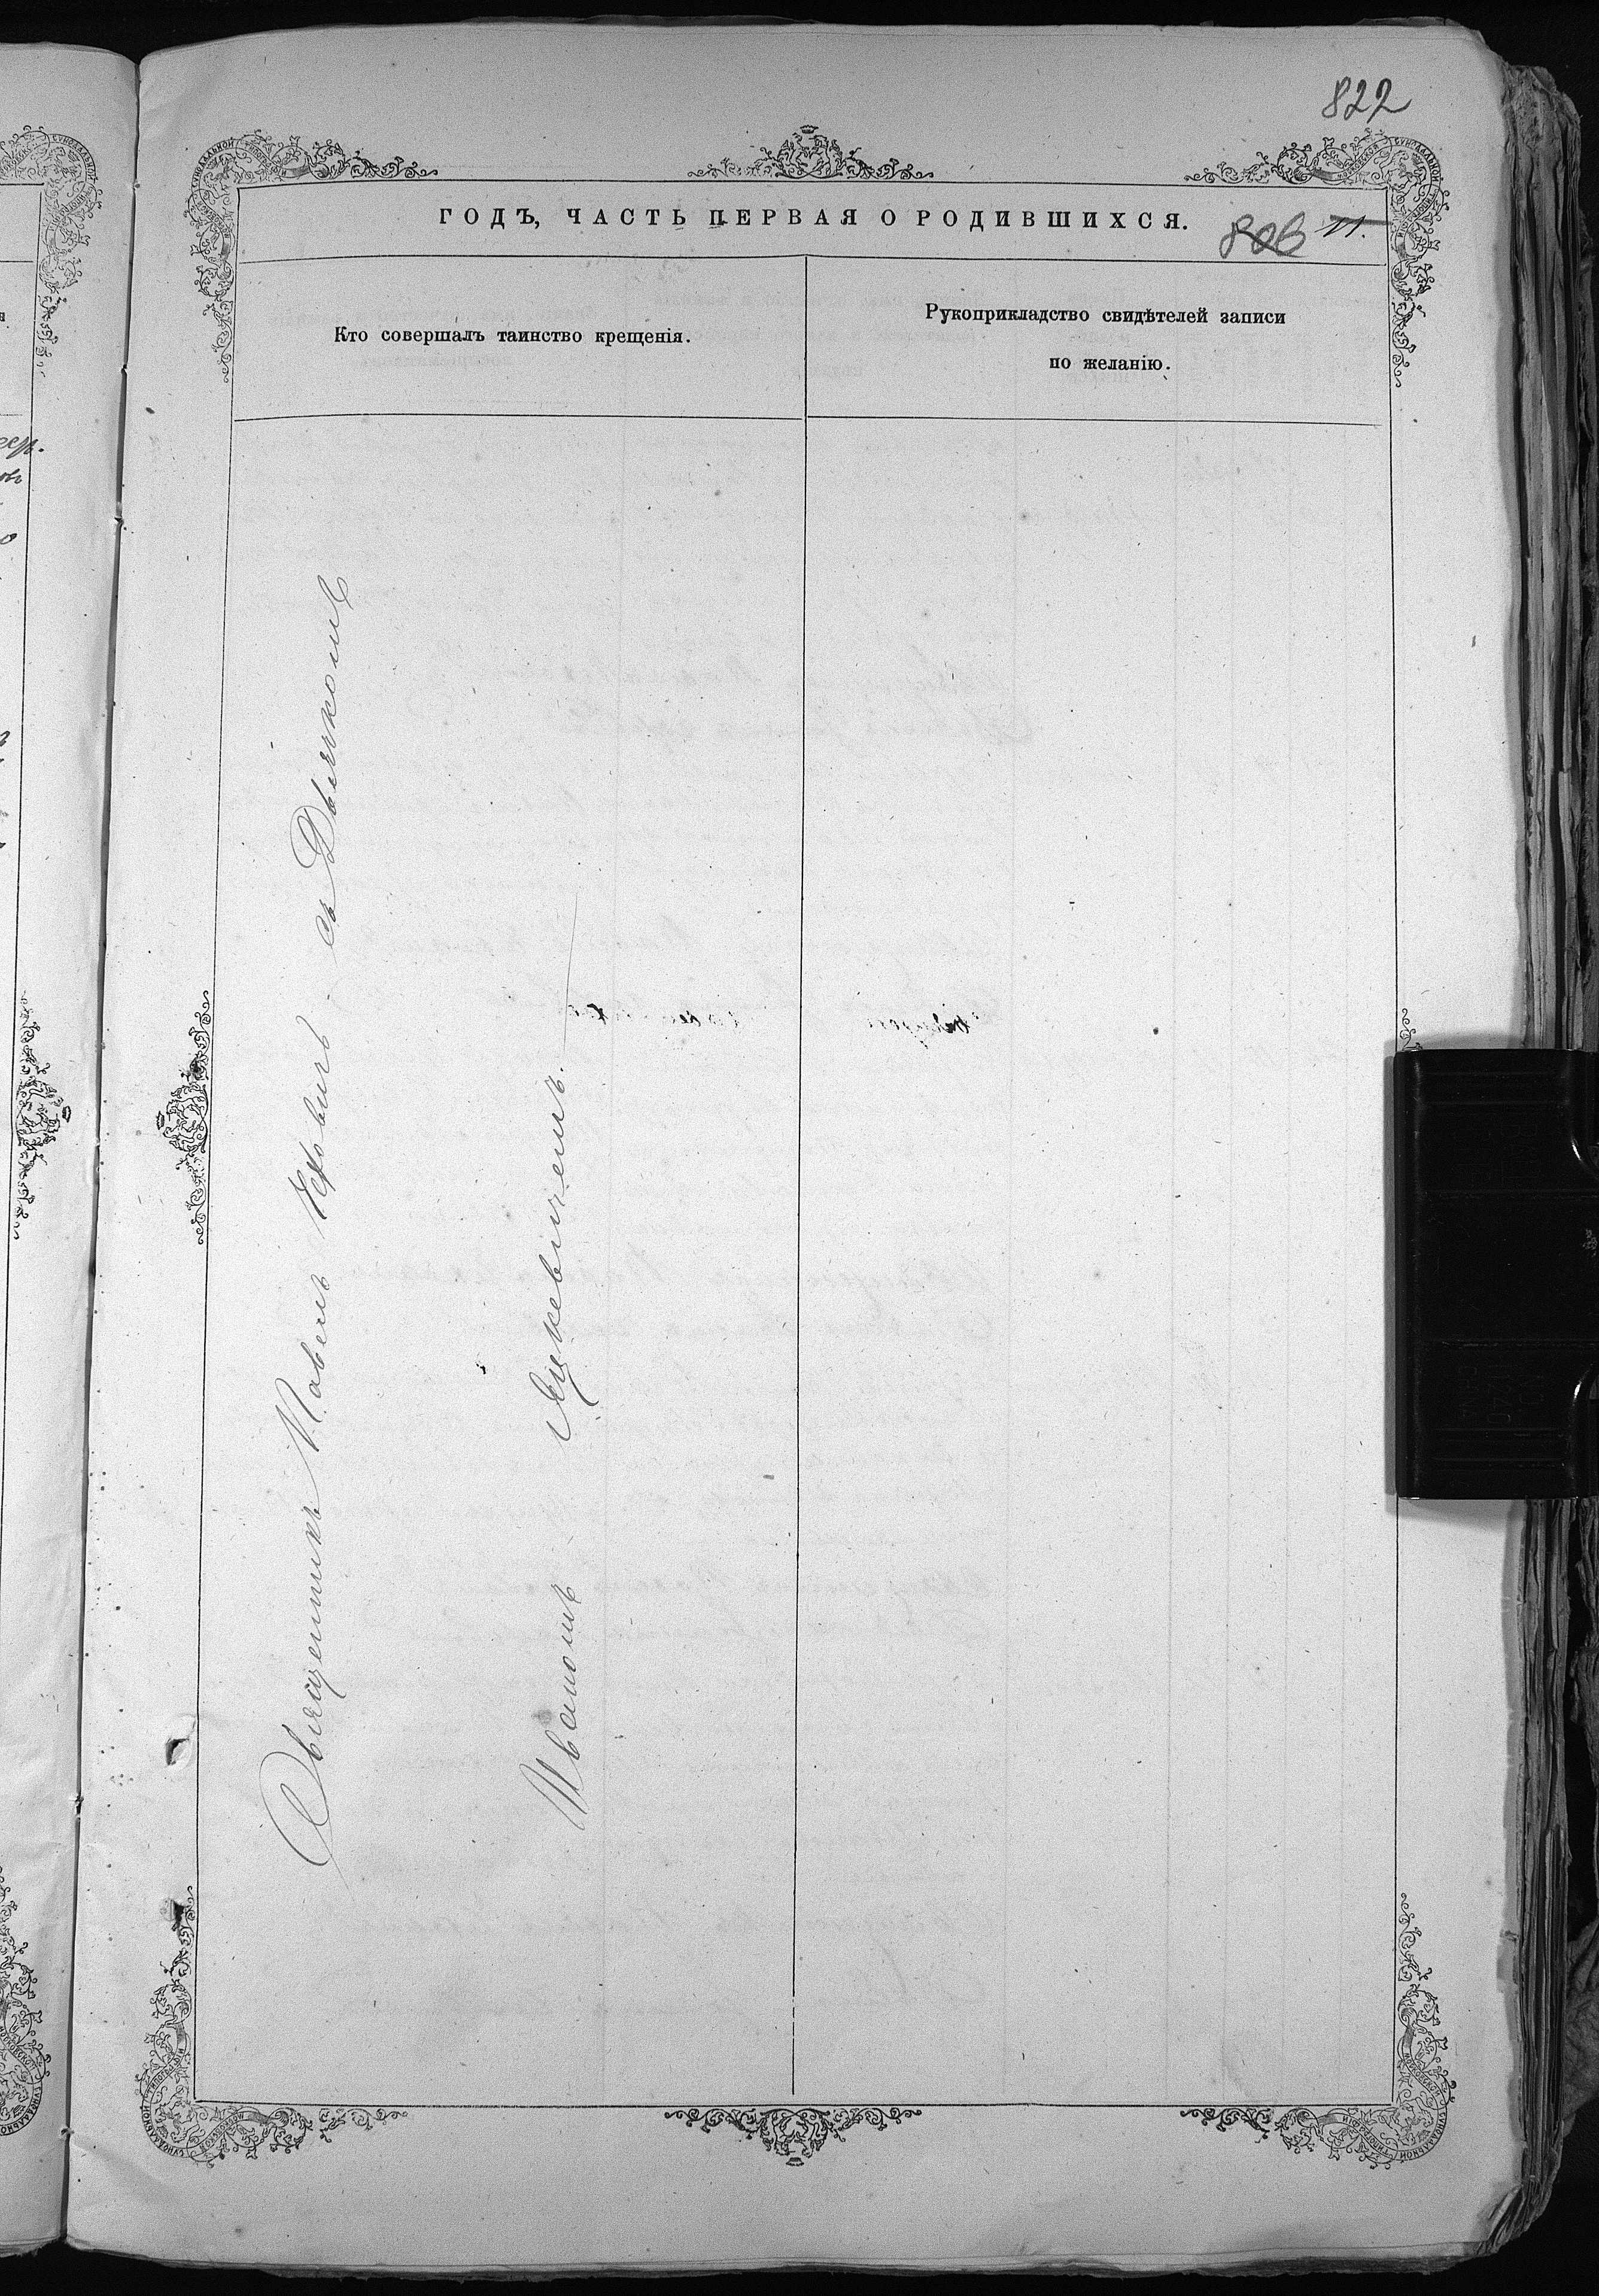 822
ГОДЪ, ЧАСТЬ ПЕРВАЯ О РОДИВШИХСЯ.
806 11.
Кто совершалъ таинство крещенія.
Рукоприкладство свидѣтелей записи
по желанію.
Священникъ Павелъ съ Дьячкомъ
Иваномъ Яцкевичемъ.